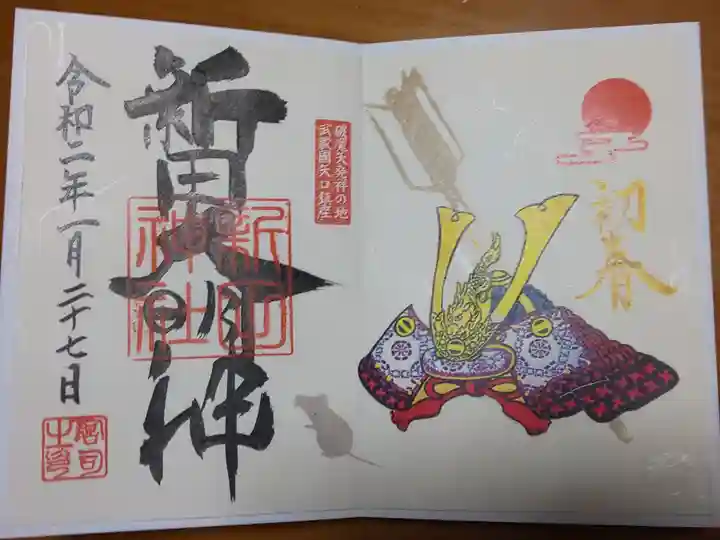 初春
破魔矢発祥の地
武蔵國矢口鎮座
新田大明神
新田
神社
令和二年一月二十七日
宮司
之印